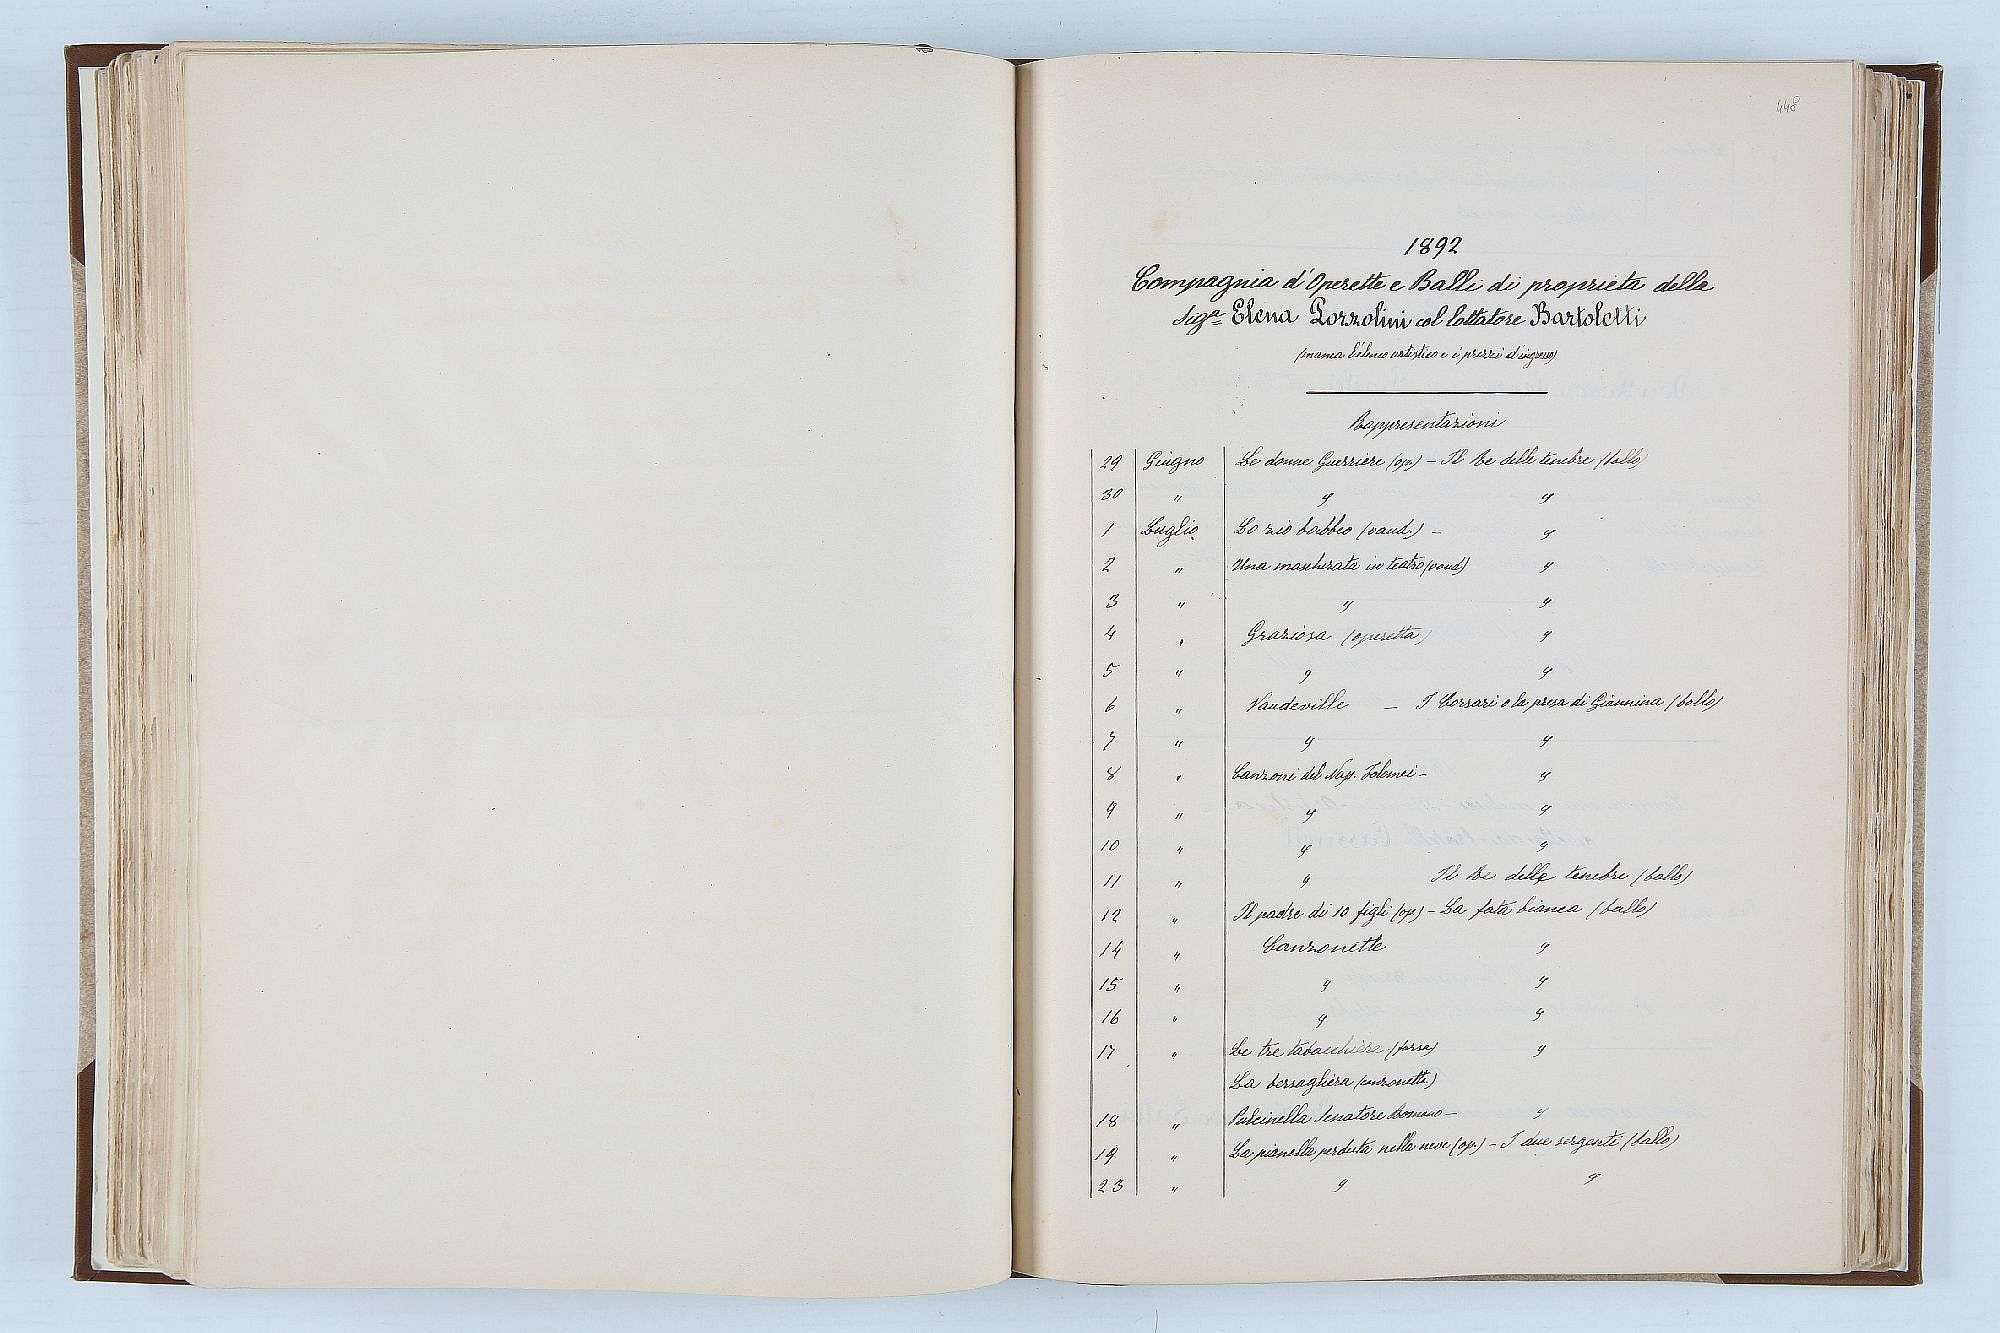 448
1892
Compagnia d'Operette e Balli di proprietà della
Sigra Elena Pozzolini col lottatore Bartoletti
(manca l'elenco artistico e i prezzi d'ingresso)
Rappresentazioni
29 Giugno Le donne Guerriere (op.) – Il Re delle tenebre (ballo)
30 " " "
1 Luglio Lo zio babbeo (vaud.) – "
2 " Una mascherata in teatro (vaud) "
3 " " "
4 " Graziosa (operetta) "
5 " " "
6 " Vaudeville – I Corsari o la presa di Giannina (ballo)
7 " " "
8 " Canzoni del Nap. Tolomei – "
9 " " "
10 " " "
11 " " Il Re delle tenebre (ballo)
12 " Il padre di 10 figli (op.) – La fata bianca (ballo)
14 " Canzonette "
15 " " "
16 " " "
17 " Le tre tabacchiere (farsa) "
La bersagliera (canzonetta)
18 " Pulcinella Senatore Romano – "
19 " La pianella perduta nella neve (op.) – I due sergenti (ballo)
23 " " "